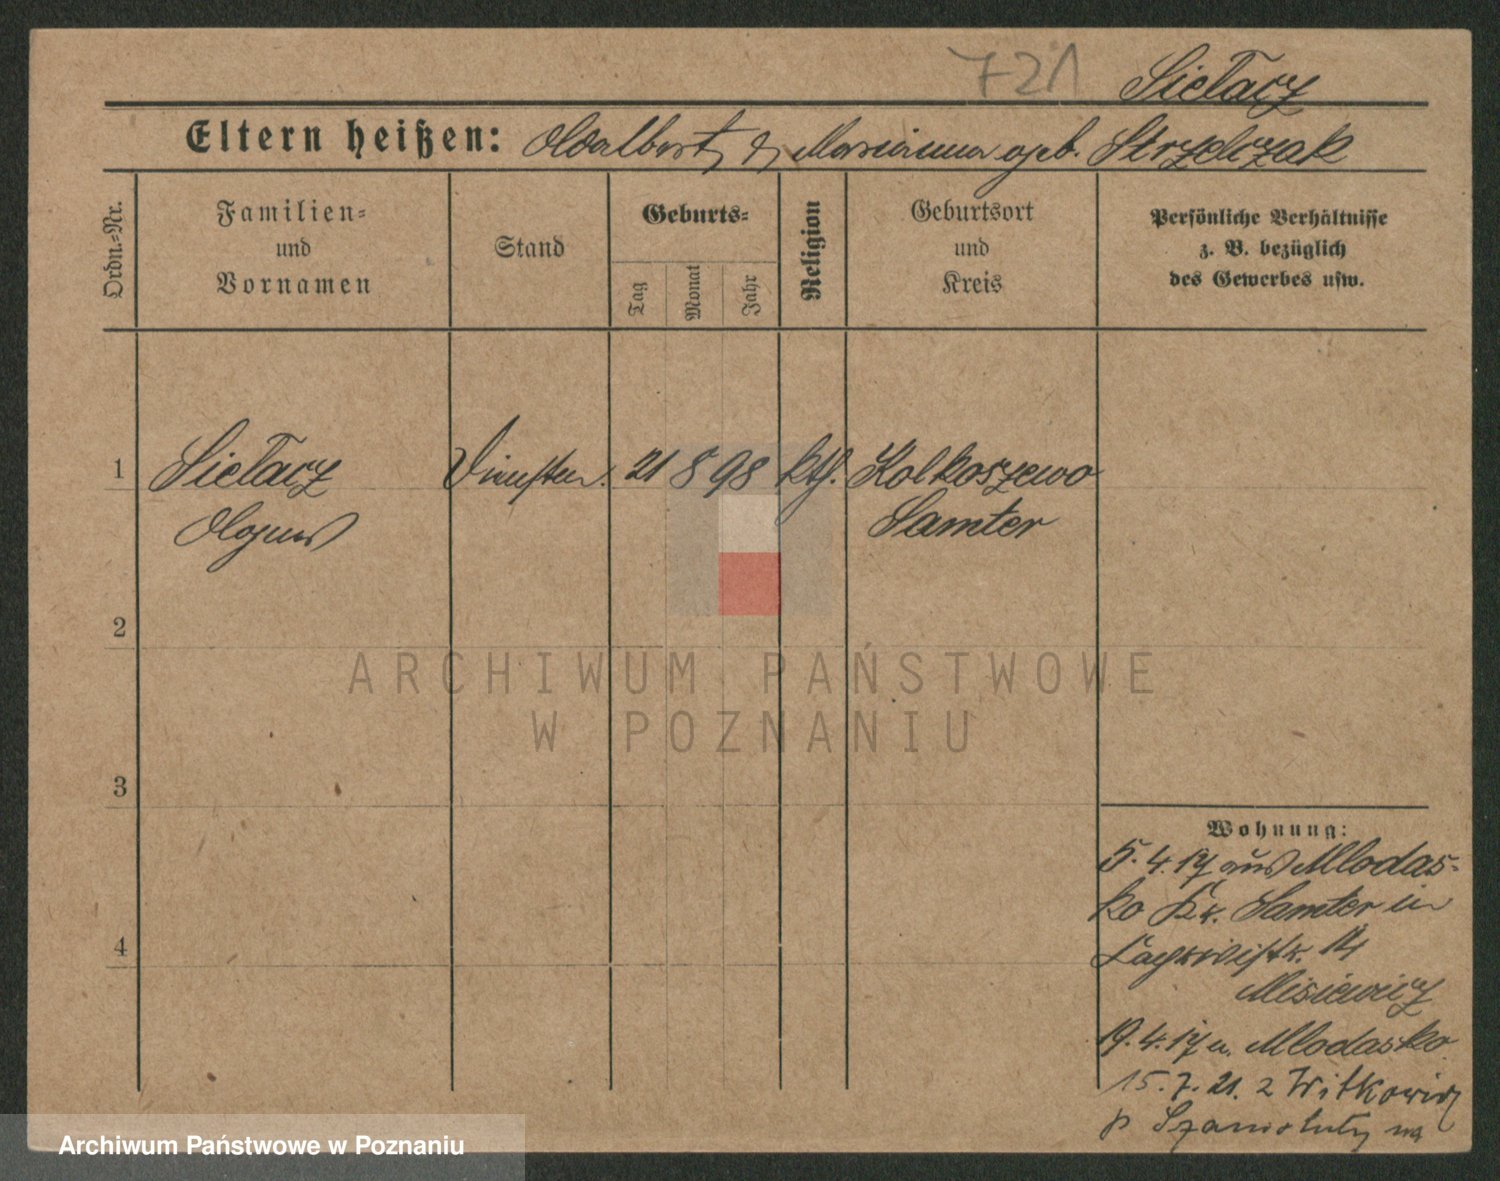 721 Sietacz
Eltern heißen: Adalbert & Marianna geb. Strzelczak
Ordn.=Nr.
Familien=
und
Vornamen
Stand
Geburts=
Tag
Monat
Jahr
Religion
Geburtsort
und
Kreis
Persönliche Verhältnisse
z. B. bezüglich
des Gewerbes usw.
1 Sietacz 21 8 98 kth. Kolkoszewo
Agnes Samter
2
3
4
Wohnung:
5.4.17 aus Mlodas-
ko Kr. Samter in
14
Misiewicz
19.4.17 n. Mlodasko
15.7.21. z Witkowic
p Szamotuły na
ARCHIWUM PAŃSTWOWE
W POZNANIU
Archiwum Państwowe w Poznaniu